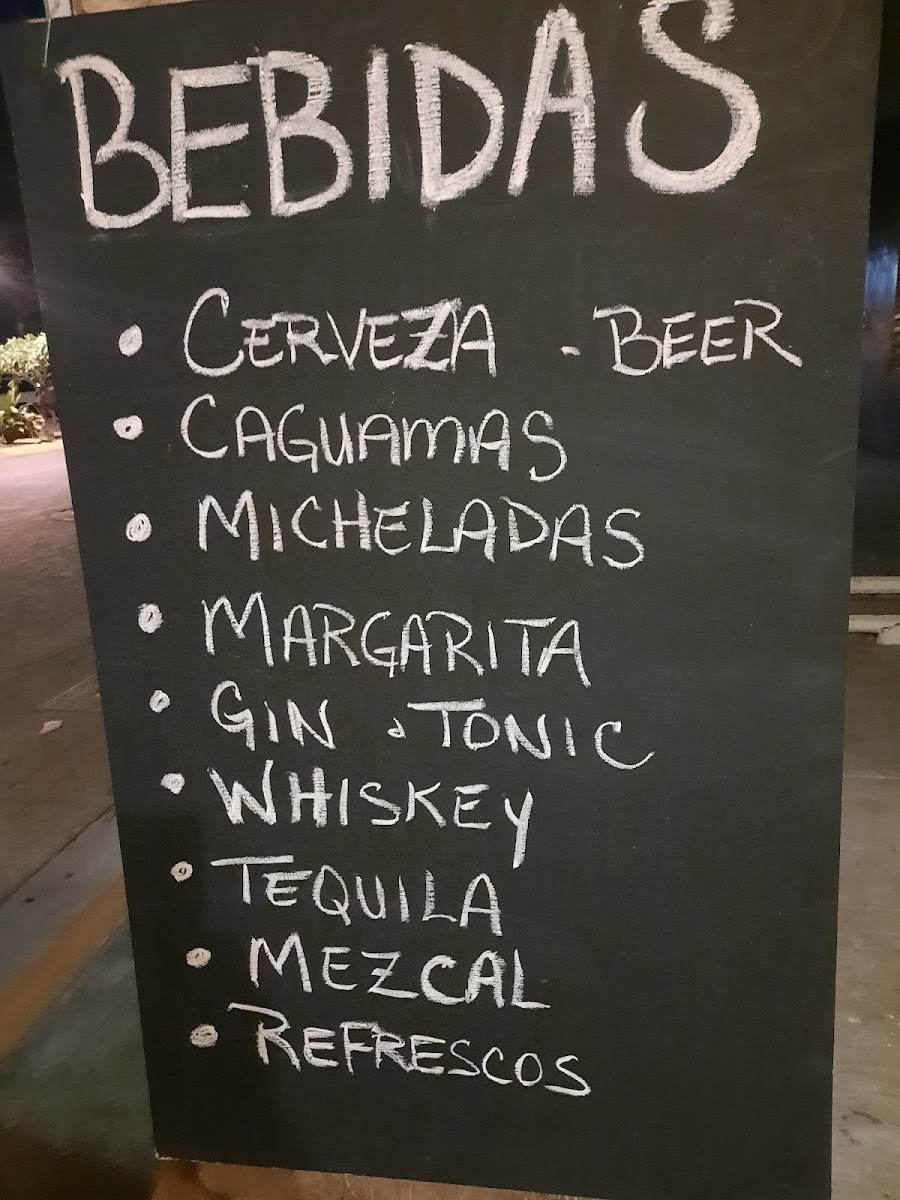 BEBIDAS
• CERVEZA - BEER
• CAGUAMAS
• MICHELADAS
• MARGARITA
• GIN & TONIC
• WHISKEY
• TEQUILA
• MEZCAL
• REFRESCOS